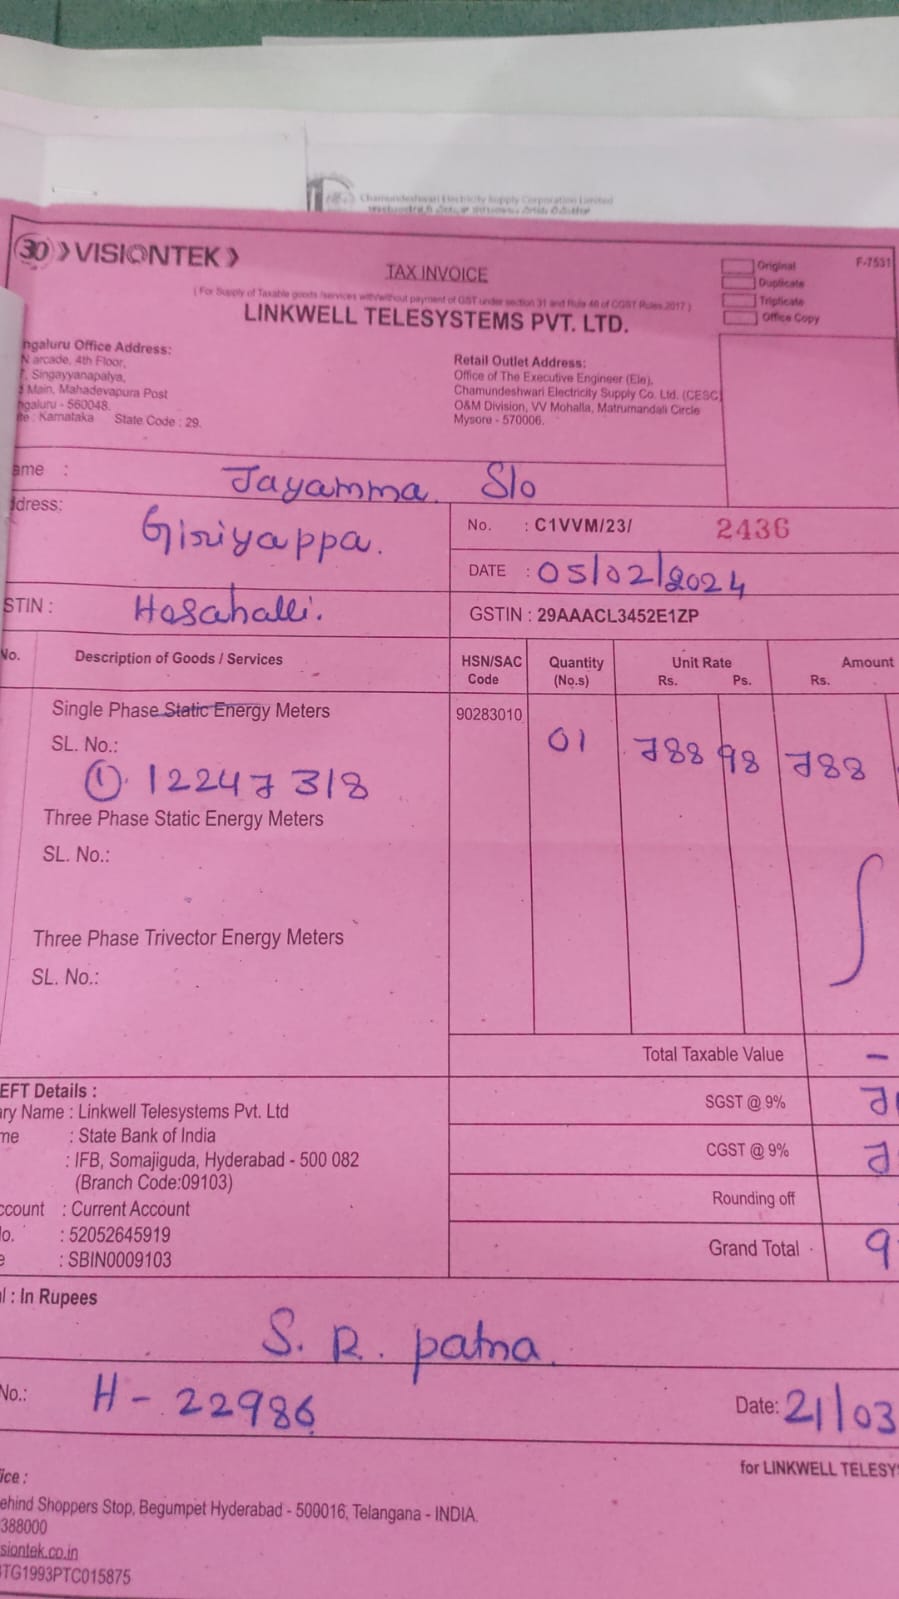 Chamundeshwari Electricity Supply Corporation Limited
30 VISIONTEK
TAX INVOICE
Original
Duplicate
Triplicate
Office Copy
F-7531
( For Supply of Taxable goods /services with/without payment of GST under section 31 and Rule 46 of CGST Rules 2017 )
LINKWELL TELESYSTEMS PVT. LTD.
ngaluru Office Address:
N arcade, 4th Floor,
Singayyanapalya,
Main, Mahadevapura Post
ngaluru - 560048.
te : Karnataka State Code : 29.
Retail Outlet Address:
Office of The Executive Engineer (Ele),
Chamundeshwari Electricity Supply Co. Ltd. (CESC
O&M Division, VV Mohalla, Matrumandali Circle
Mysore - 570006.
ame : Jayamma S/o
ddress: Giriyappa.
No. : C1VVM/23/ 2436
DATE : 05/02/2024
STIN : Hosahalli.
GSTIN : 29AAACL3452E1ZP
No. Description of Goods / Services HSN/SAC Code Quantity (No.s) Unit Rate Rs. Ps. Amount Rs.
Single Phase Static Energy Meters 90283010 01 788 98 788
SL. No.:
① 12247318
Three Phase Static Energy Meters
SL. No.:
Three Phase Trivector Energy Meters
SL. No.:
Total Taxable Value -
EFT Details :
ary Name : Linkwell Telesystems Pvt. Ltd
me : State Bank of India
: IFB, Somajiguda, Hyderabad - 500 082
(Branch Code:09103)
ccount : Current Account
No. : 52052645919
e : SBIN0009103
SGST @ 9% 7
CGST @ 9% 7
Rounding off
Grand Total 9
l : In Rupees
S. R. patna
No.: H - 22986
Date: 21/03
for LINKWELL TELESY
ice :
ehind Shoppers Stop, Begumpet Hyderabad - 500016, Telangana - INDIA.
388000
siontek.co.in
TG1993PTC015875